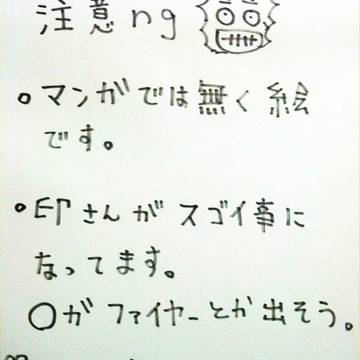 注意ng
。マンガでは無く絵
です。
。印さんがスゴイ事に
なってます。
〇がファイヤーとか出そう。